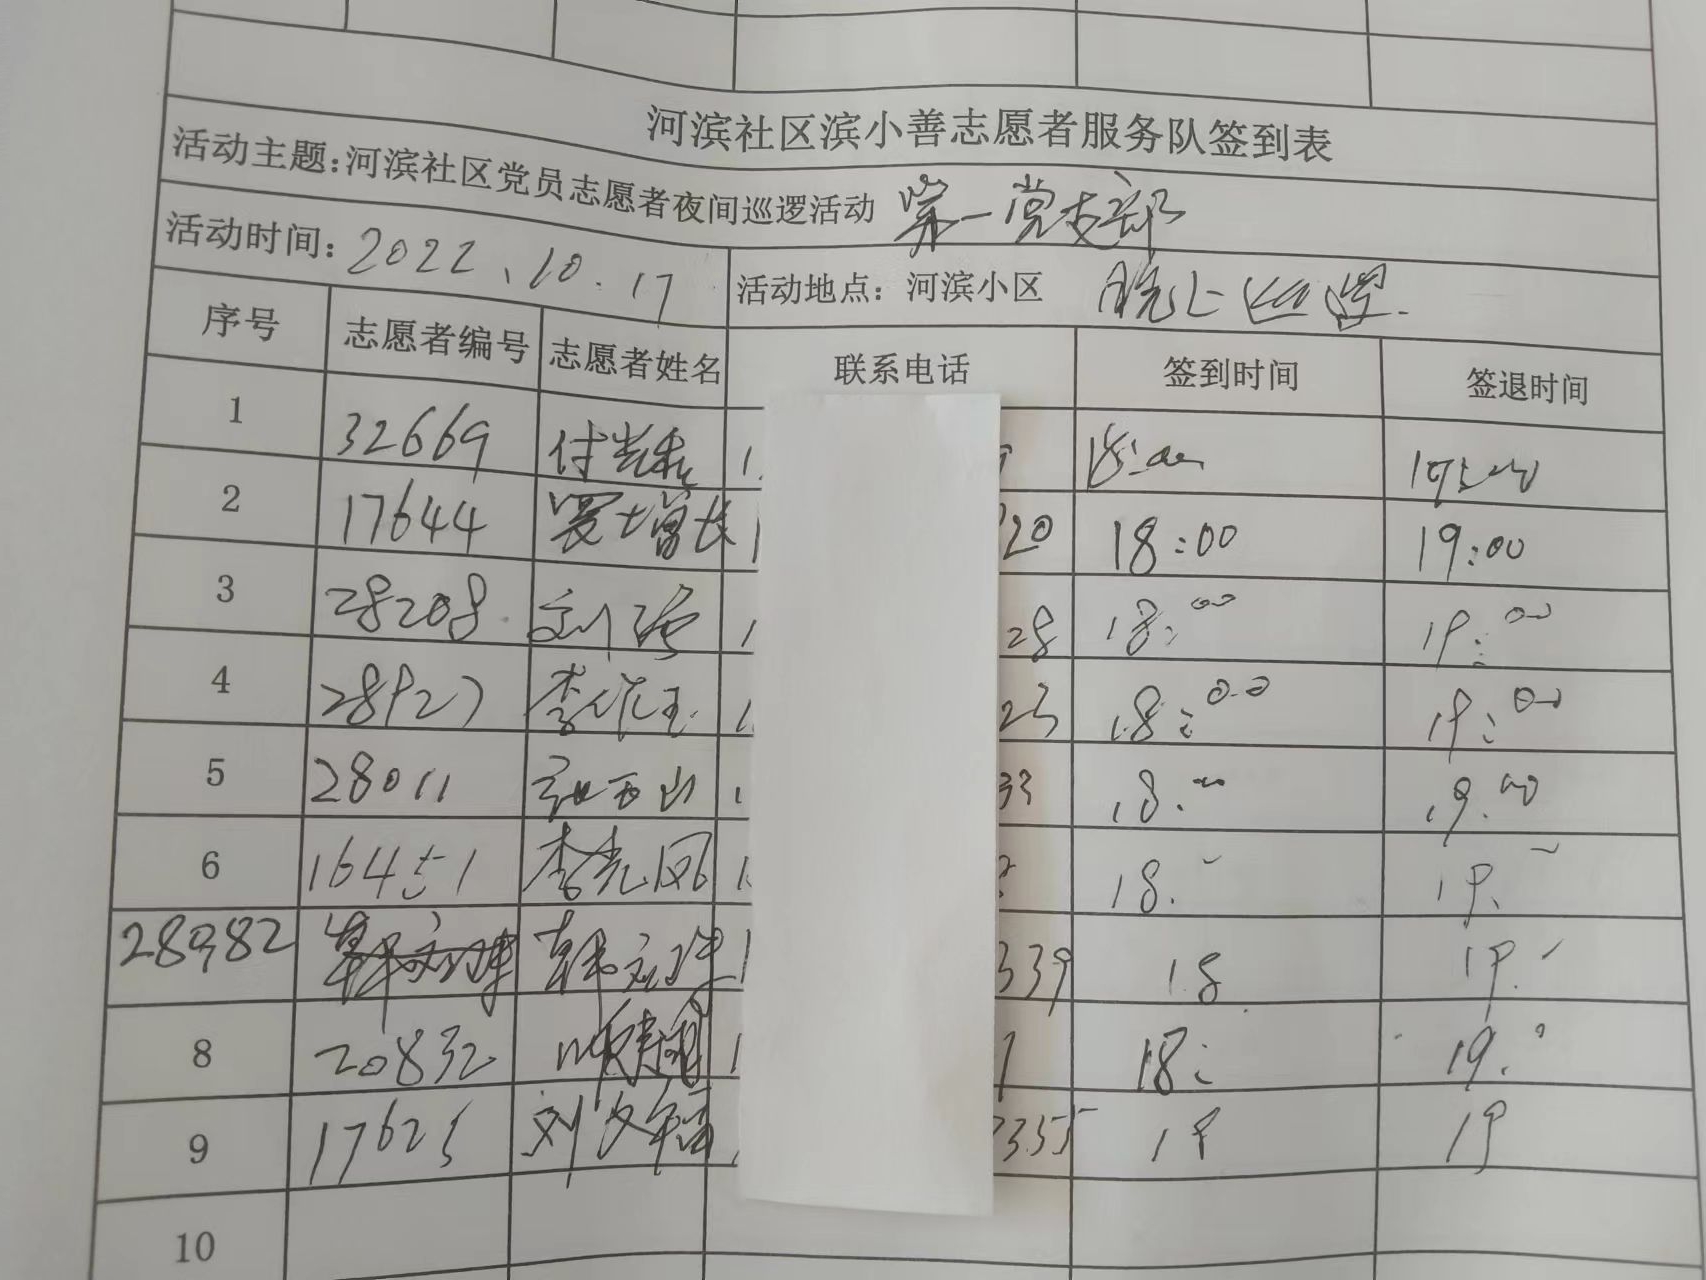 河滨社区滨小善志愿者服务队签到表
活动主题:河滨社区党员志愿者夜间巡逻活动 第一党支部
活动时间: 2022、10.17 活动地点: 河滨小区 晚上巡逻.
序号 志愿者编号 志愿者姓名 联系电话 签到时间 签退时间
1 32669 付 18:00 19:00
2 17644 增长 20 18:00 19:00
3 28208 刘强 28 18:00 19:00
4 28927 李 23 18:00 19:00
5 28011 张西山 33 18. 19.00
6 16451 李先凤 18. 19.
28982 韩文 339 18 19.
8 20832 18: 19.
9 17625 刘文 3355 18 19
10